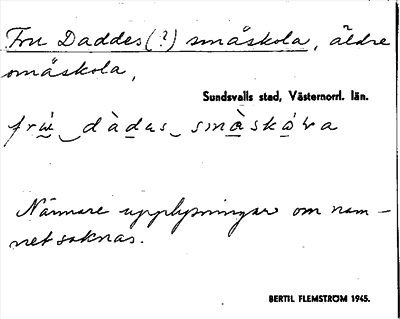 Fru Daddes (?) småskola, äldre
småskola,
Sundsvalls stad, Västernorrl. län.
frù dàdas småskóva
Närmare upplysningar om nam-
net saknas.
BERTIL FLEMSTRÖM 1945.